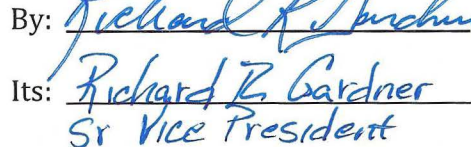 By: Richard R Gardner
Its: Richard R Gardner
Sr Vice President